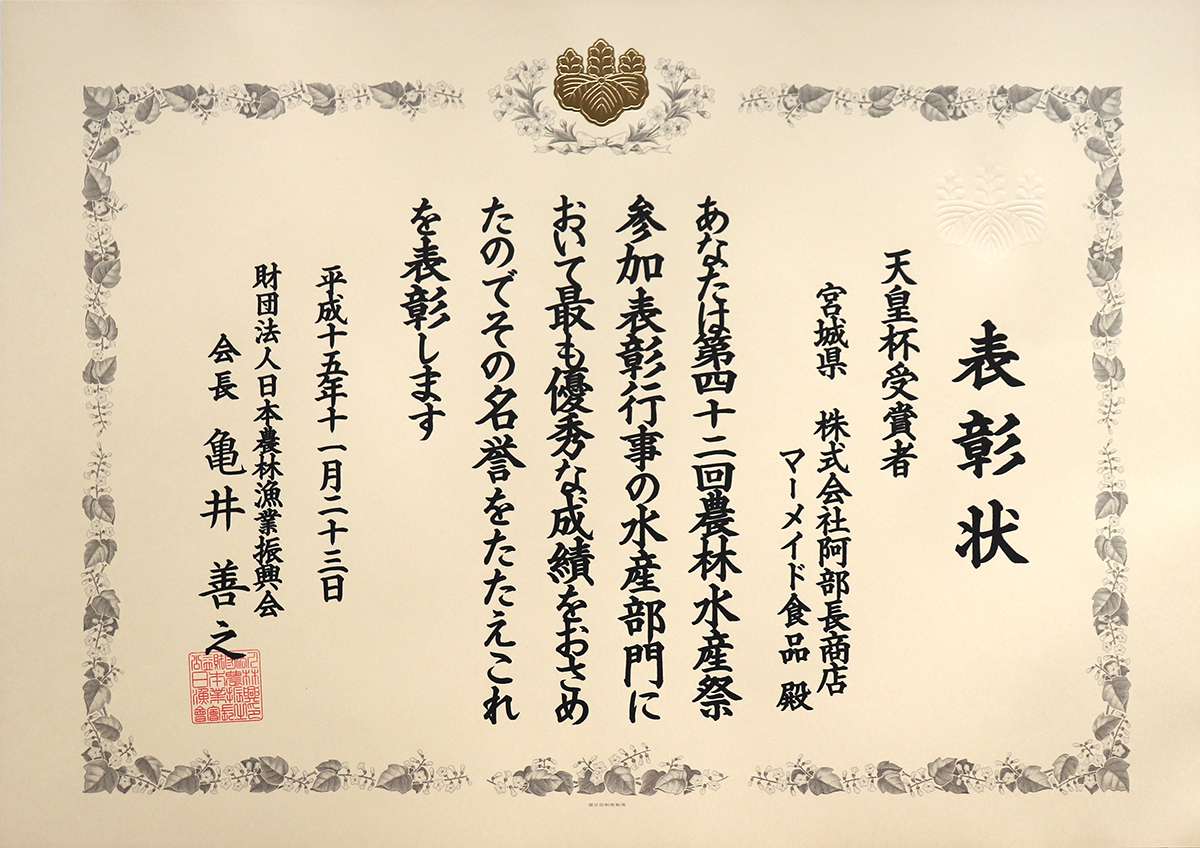 表彰状
天皇杯受賞者
宮城県　株式会社阿部長商店
マーメイド食品　殿
あなたは第四十二回農林水産祭
参加表彰行事の水産部門に
おいて最も優秀な成績をおさめ
たのでその名誉をたたえこれ
を表彰します
平成十五年十一月二十三日
財団法人日本農林漁業振興会
会長　亀井善之